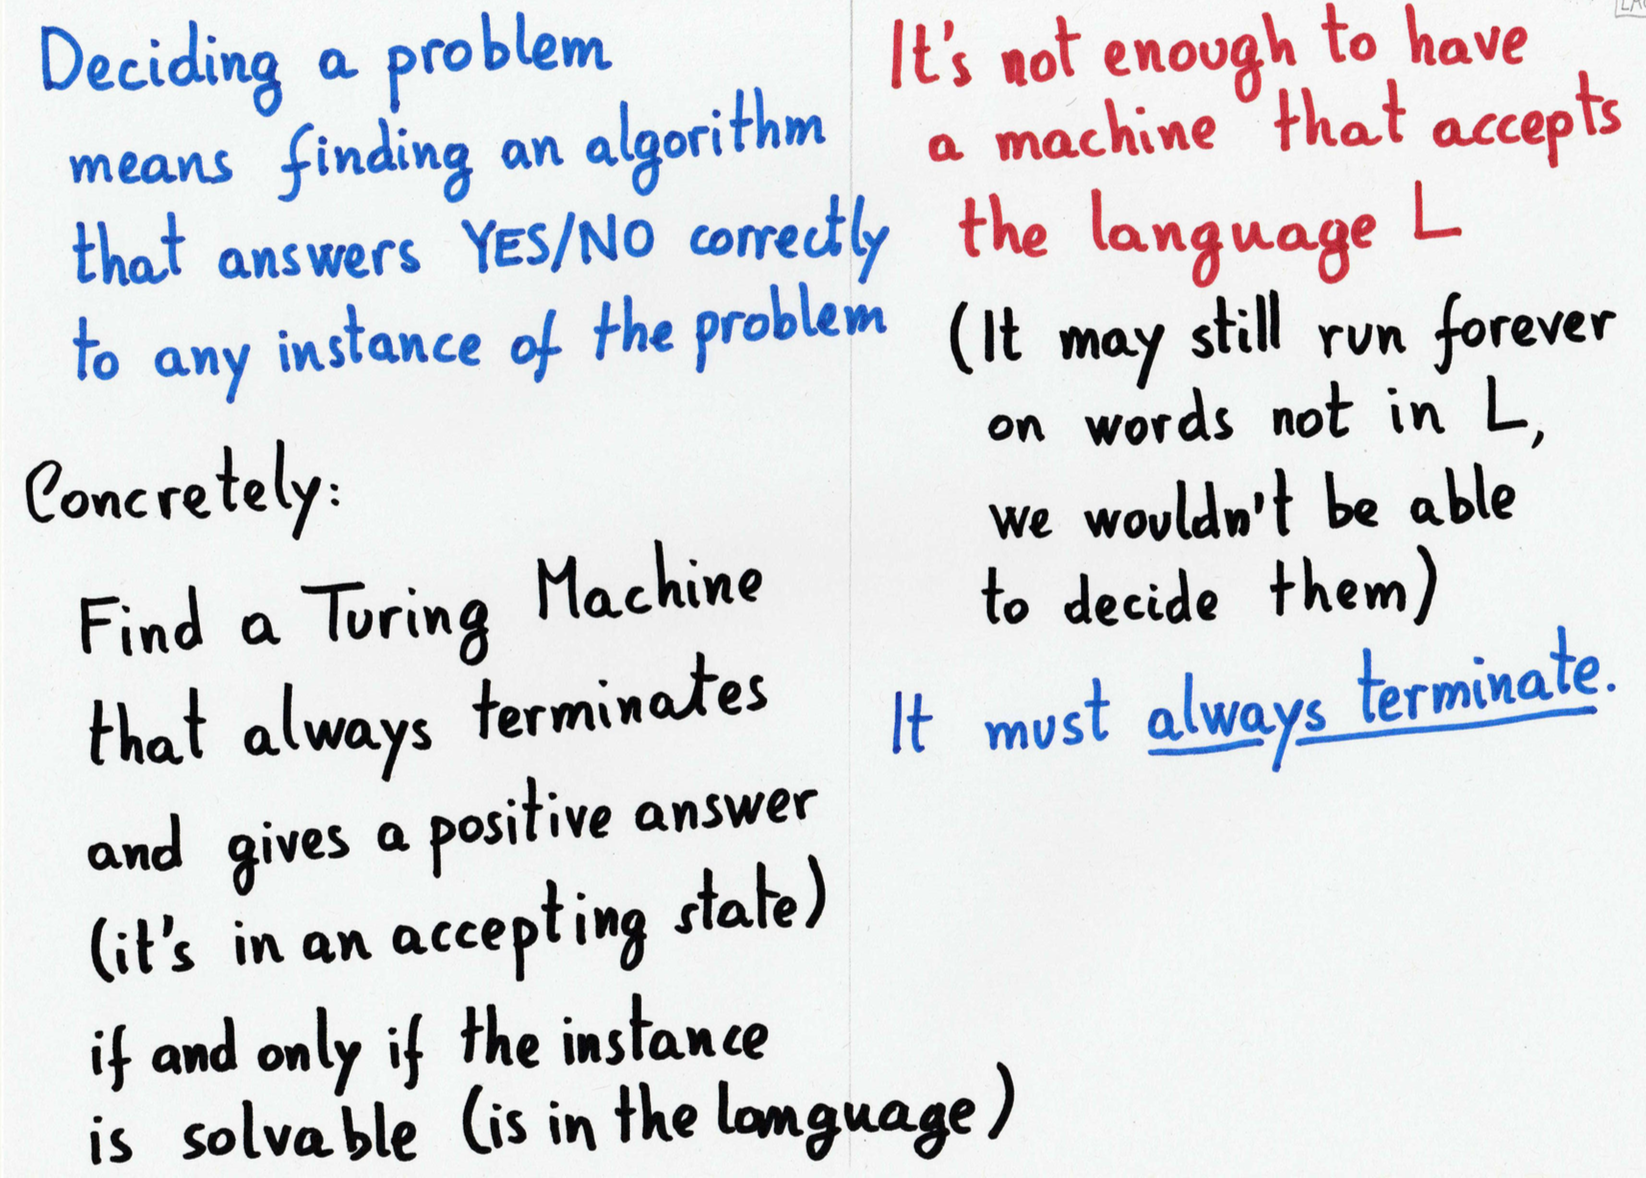 Deciding a problem
means finding an algorithm
that answers YES/NO correctly
to any instance of the problem
Concretely:
Find a Turing Machine
that always terminates
and gives a positive answer
(it's in an accepting state)
if and only if the instance
is solvable (is in the language)
It's not enough to have
a machine that accepts
the language L
(It may still run forever
on words not in L,
we wouldn't be able
to decide them)
It must always terminate.